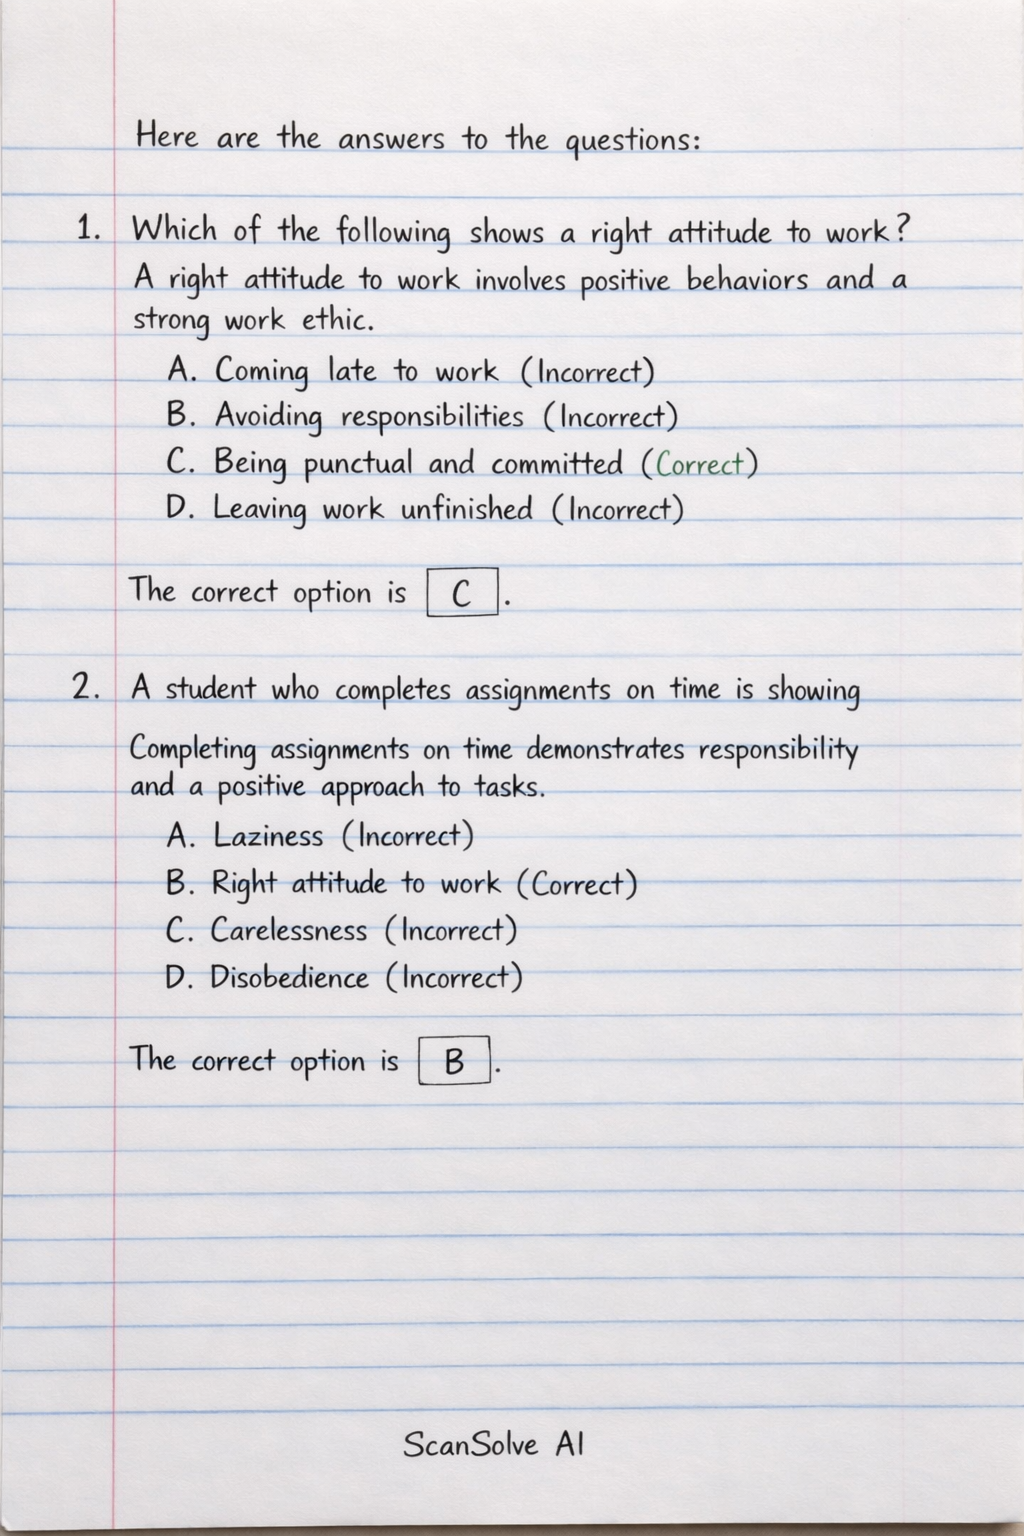 Here are the answers to the questions:
1. Which of the following shows a right attitude to work?
A right attitude to work involves positive behaviors and a
strong work ethic.
A. Coming late to work (Incorrect)
B. Avoiding responsibilities (Incorrect)
C. Being punctual and committed (Correct)
D. Leaving work unfinished (Incorrect)
The correct option is C.
2. A student who completes assignments on time is showing
Completing assignments on time demonstrates responsibility
and a positive approach to tasks.
A. Laziness (Incorrect)
B. Right attitude to work (Correct)
C. Carelessness (Incorrect)
D. Disobedience (Incorrect)
The correct option is B.
ScanSolve AI